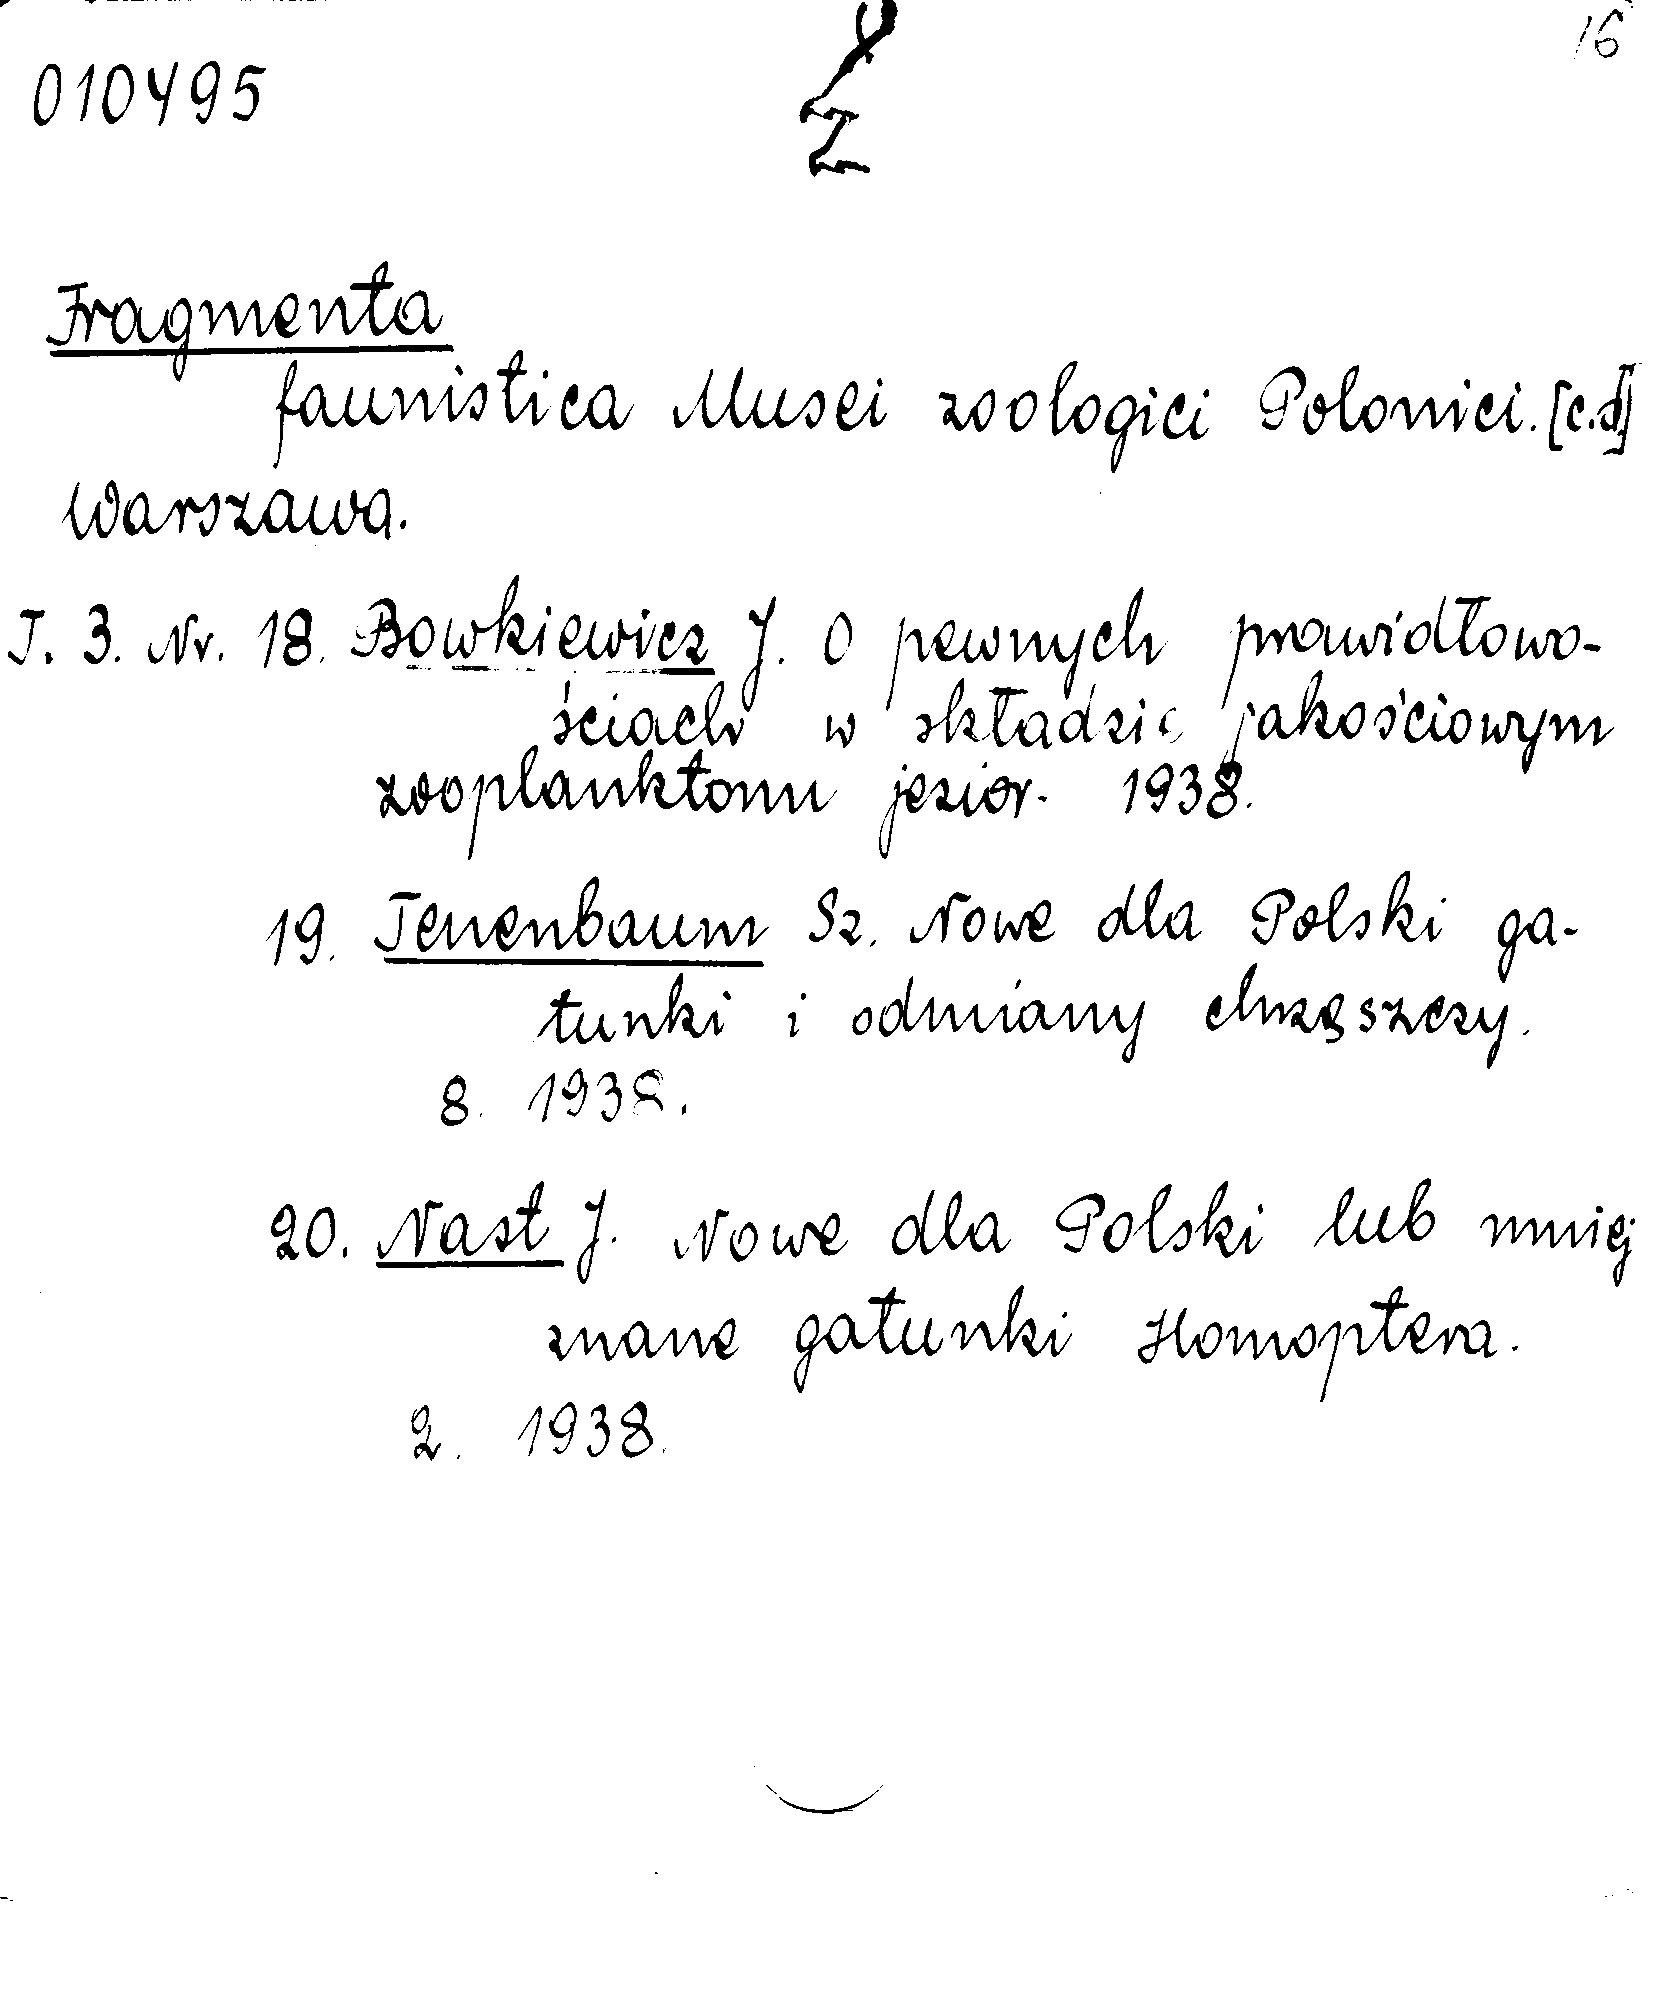 16
010495
Z
Fragmenta
faunistica Musei zoologici Polonici. [c.d.]
Warszawa.
T. 3. Nr. 18. Bowkiewicz J. O pewnych prawidłowo-
ściach w składzie jakościowym
zooplanktonu jezior. 1938.
19. Tenenbaum Sz. Nowe dla Polski ga-
tunki i odmiany chrząszczy.
8. 1938.
20. Nast J. Nowe dla Polski lub mniej
znane gatunki Homoptera.
2. 1938.